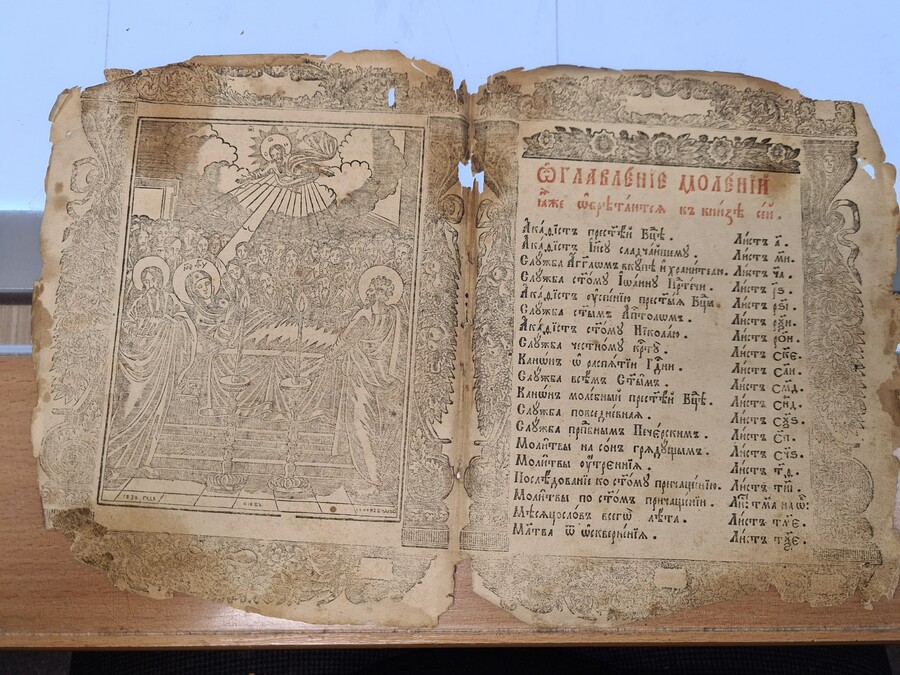 МР ѲУ
1826 ГОДА
КІЕВЪ
Ѡ҆ГЛАВЛЕ́НІЕ МОЛЕ́НІЙ
ꙗ҆̀же ѡ҆брѣта́ются къ кни́зѣ се́й.
А҆ка́ѳїстъ прест҃ѣ́й Бц҃ѣ. Ли́стъ а҃.
А҆ка́ѳїстъ І҆и҃су сладча́йшему. Ли́стъ м҃и.
Слꙋ́жба А҆́гг҃лѡмъ вкꙋ́пѣ и҆ храни́телю. Ли́стъ ч҃а.
Слꙋ́жба ст҃о́мꙋ І҆ѡа́ннꙋ Прⷣте́чи. Ли́стъ
А҆ка́ѳїстъ ᲂу҆спе́нїю прест҃ы́ѧ Бц҃ы. Ли́стъ
Слꙋ́жба ст҃ы̑мъ А҆пⷭ҇толѡмъ. Ли́стъ
А҆ка́ѳїстъ ст҃о́мꙋ Нїкола́ю. Ли́стъ
Слꙋ́жба честно́мꙋ крⷭ҇тꙋ̀. Ли́стъ
Канѡ́нъ ѡ҆ распѧ́тїи Гдⷭ҇ни. Ли́стъ
Слꙋ́жба всѣ̑мъ Ст҃ы̑мъ. Ли́стъ
Канѡ́нъ моле́бный прест҃ѣ́й Бц҃ѣ. Ли́стъ
Слꙋ́жба повседне́внаѧ. Ли́стъ
Слꙋ́жба прпⷣбнымъ Пече́рскимъ. Ли́стъ с҃п.
Моли̑твы на со́нъ грѧдꙋ́щымъ. Ли́стъ
Моли̑твы ᲂу҆́трєннїѧ. Ли́стъ т҃д.
Послѣ́дованїе ко ст҃о́мꙋ причаще́нїю. Ли́стъ
Моли̑твы по ст҃о́мъ причаще́нїи.
Мⷭ҇ѧцосло́въ всегѡ̀ лѣ́та. Ли́стъ
Мл҃тва ѿ ѡ҆скверне́нїѧ. Ли́стъ